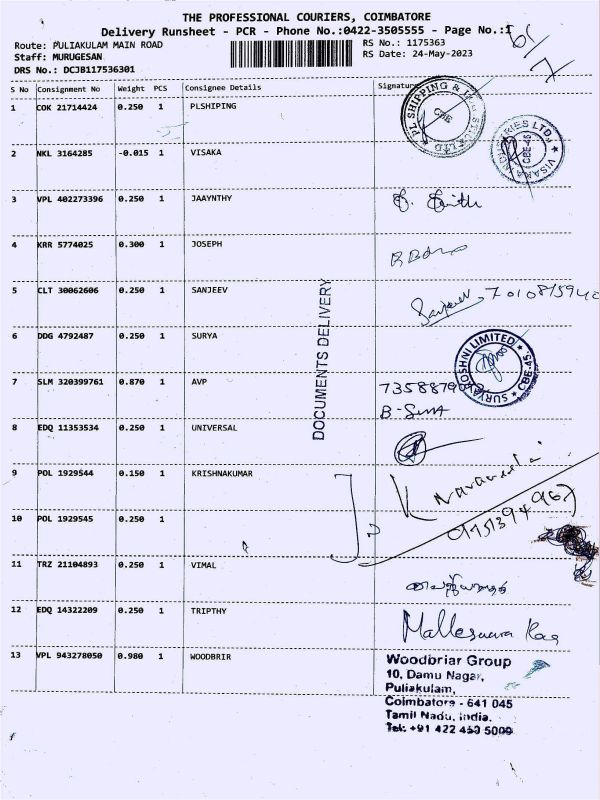 THE PROFESSIONAL COURIERS, COIMBATORE
Delivery Runsheet - PCR - Phone No.:0422-3505555 - Page No.:1
Route: PULIAKULAM MAIN ROAD
RS No.: 1175363
Staff: MURUGESAN
RS Date: 24-May-2023
DRS No.: DCJB117536301
S No Consignment No Weight PCS Consignee Details Signature
1 COK 21714424 0.250 1 PLSHIPING
2 NKL 3164285 -0.015 1 VISAKA
3 VPL 402273396 0.250 1 JAAYNTHY
4 KRR 5774025 0.300 1 JOSEPH
5 CLT 30062606 0.250 1 SANJEEV
6 DDG 4792487 0.250 1 SURYA
SURYAJOSHNI LIMITED
CBE-45
7 SLM 320399761 0.870 1 AVP
8 EDQ 11353534 0.250 1 UNIVERSAL
9 POL 1929544 0.150 1 KRISHNAKUMAR
10 POL 1929545 0.250 1
11 TRZ 21104893 0.250 1 VIMAL
12 EDQ 14322209 0.250 1 TRIPTHY
13 VPL 943278050 0.980 1 WOODBRIR
DOCUMENTS DELIVERY
Woodbriar Group
10, Damu Nagar,
Puliakulam,
Coimbatore - 641 045
Tamil Nadu, India.
Tel: +91 422 450 5000